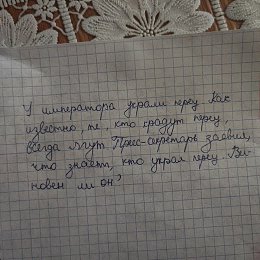 У императора украли перец. Как
известно, те, кто крадут перец,
всегда лгут. Пресс-секретарь заявил,
что знает, кто украл перец. Ви-
новен ли он?